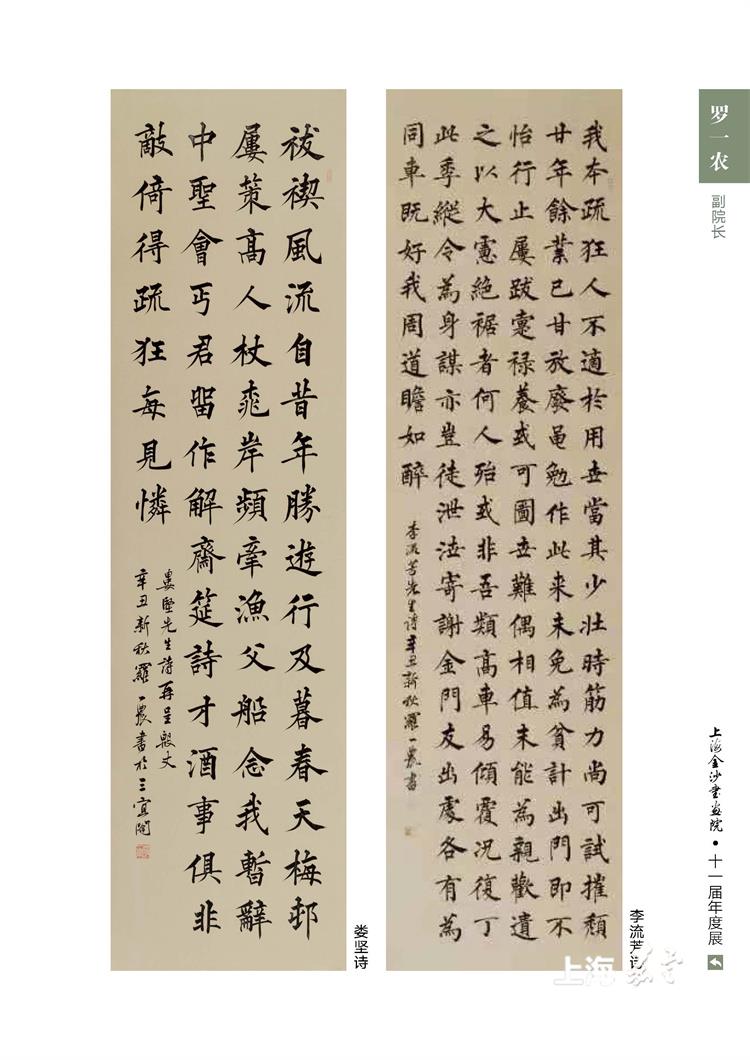 我本疏狂人不適於用世當其少壯時筋力尚可試摧頹
廿年餘業已甘放廢黽勉作此来未免為貧計出門即不
怡行止屢跋疐禄養或可圖世難偶相值未能為親歡遺
之以大絶裾者何人殆或非吾類高車易傾覆况復丁
此季縱令為身謀亦豈徒泄泄寄謝金門友出處各有為
同車既好我周道瞻如醉
李流芳先生詩辛丑新秋羅一農書
李流芳诗
祓禊風流自昔年勝遊行及暮春天梅邨
屢策高人杖桃岸頻牽漁父船念我暫辭
中聖會丐君留作解齋筵詩才酒事俱非
敵倚得疏狂每見憐
婁堅先生詩再呈殷丈
辛丑新秋羅一農書於三宜閣
娄坚诗
罗一农
副院长
上海金沙书画院•十一届年度展
上海